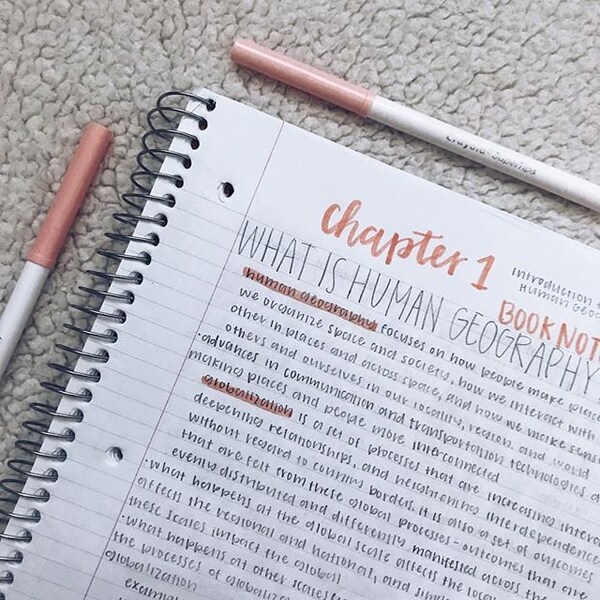 Crayola Supertips
chapter 1
Introduction
Human Geog
BOOK NOT
WHAT IS HUMAN GEOGRAPHY
human geography focuses on how people make place
we organize space and society, how we interact with
other in places and across space, and how we make sense
others and ourselves in our locality, region, and world
·advances in communication and transportation technologies a
making places and people more interconnected
globalization is a set of processes that are increasing intera
deepening relationships, and heightening interdependence
without regard to country borders. it is also a set of outcomes
that are felt from these global processes - outcomes that are
evenly distributed and differently manifested across the
·what happens at the global scale affects the local
affects the regional and national, and simil
these scales impact the global
·what happens at other scales
the processes of globaliz
globalization
exam